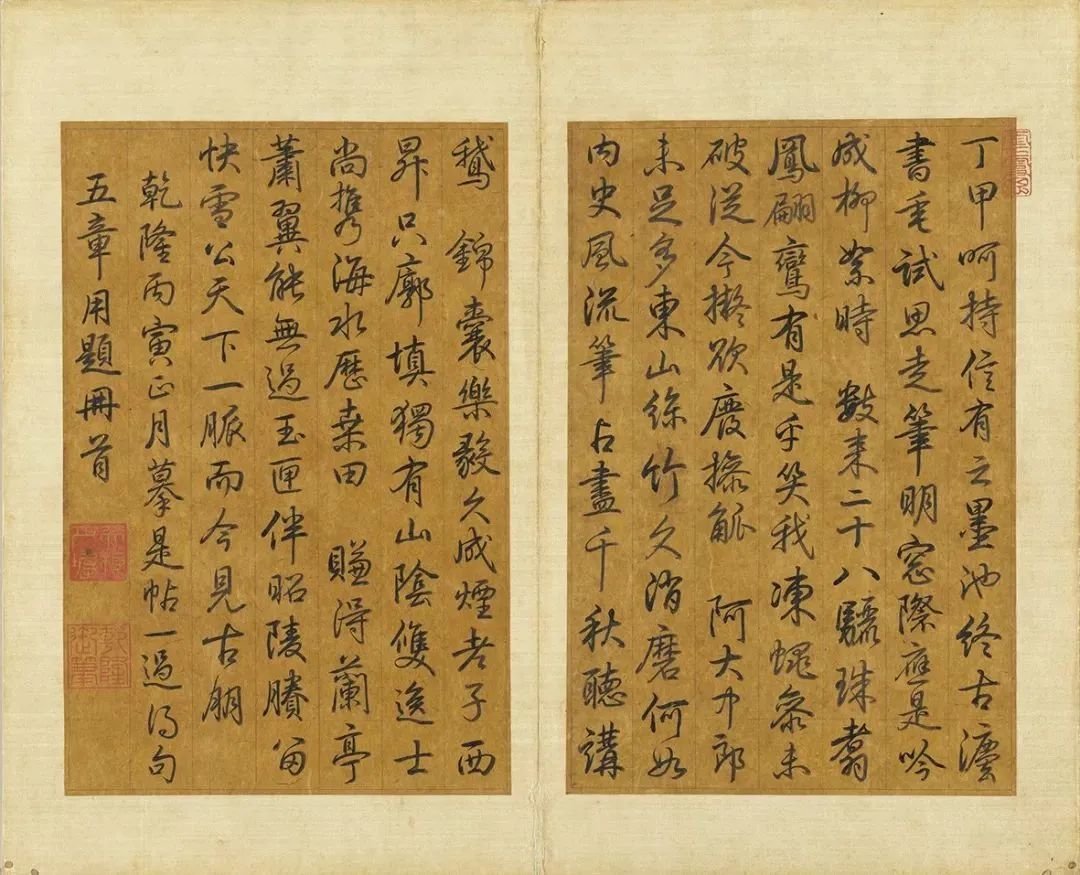 丁甲呵持信有之墨池終古
書垂試思走筆明窓際應是吟
成柳絮時　數來二十八驪珠翥
鳳翩鸞有是乎笑我凍蠅參未
破從今擬欲廢操觚　阿大中郎
未足多東山絲竹久消磨何如
內史風流筆占盡千秋聽講
鵝　錦囊樂毅久成煙老子西
昇只廓填獨有山陰雙逸士
尚攜海水歷桑田　賺得蘭亭
蕭翼能無過玉匣伴昭陵賸留
快雪公天下一脈而今見古朋
乾隆丙寅正月摹是帖一過得句
五章用題冊首
乾隆御筆